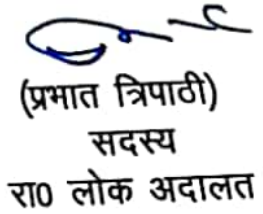 (प्रभात त्रिपाठी)
सदस्य
रा0 लोक अदालत